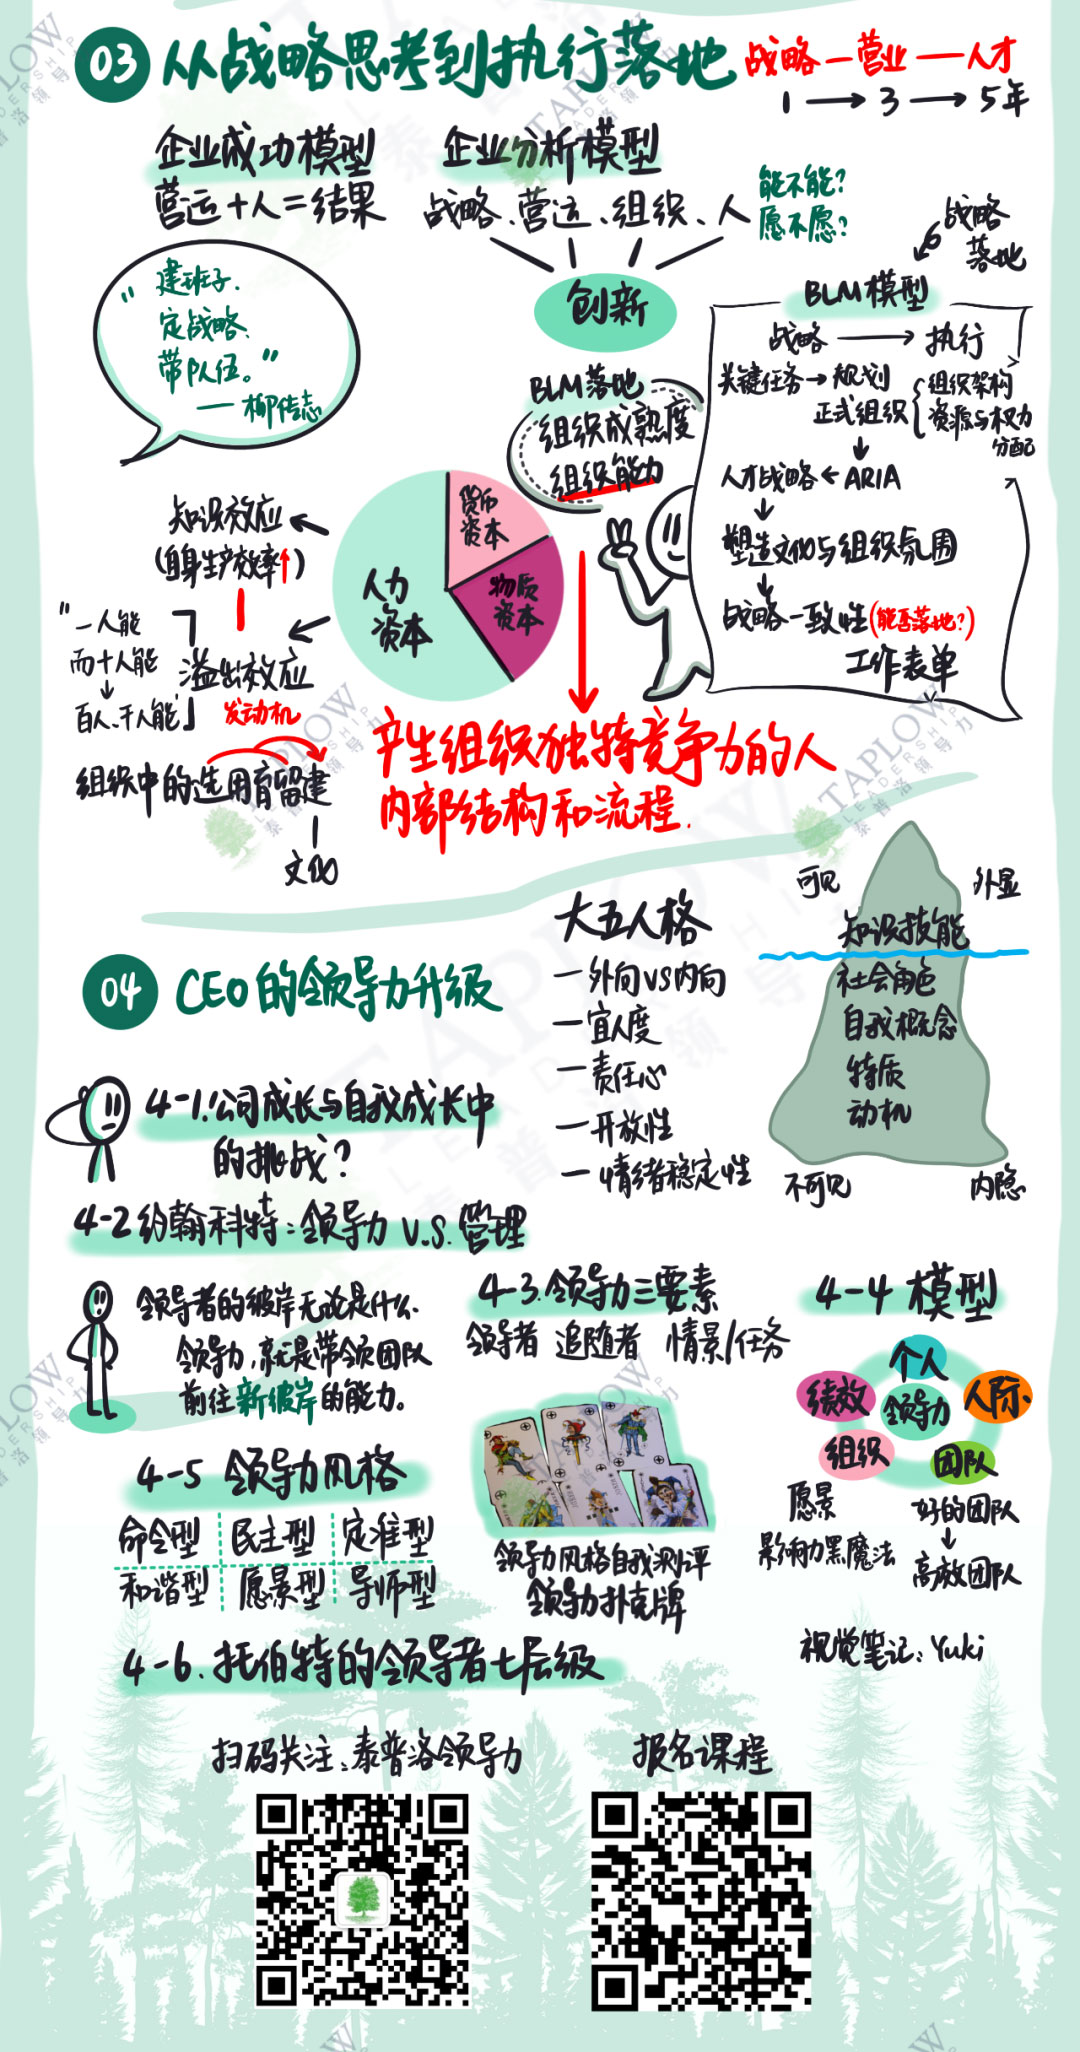 03 从战略思考到执行落地
战略—营业—人才
1→3→5年
企业成功模型
营运+人=结果
企业分析模型
战略、营运、组织、人
能不能?
愿不愿?
创新
战略
落地
"建班子.
定战略、
带队伍。"
——柳传志
BLM模型
战略→执行
关键任务→规划
正式组织
组织架构
资源与权力
分配
人才战略←ARIA
塑造文化与组织氛围
战略一致性(能否落地?)
工作表单
BLM落地
组织成熟度
组织能力
货币
资本
物质
资本
人力
资本
知识效应
(自身生产效率↑)
"一人能
而十人能
百人、千人能」
溢出效应
发动机
组织中的选用育留建
文化
产生组织独特竞争力的人
内部结构和流程.
04 CEO的领导力升级
大五人格
一外向VS内向
一宜人度
一责任心
一开放性
一情绪稳定性
可见
外显
知识技能
社会角色
自我概念
特质
动机
不可见
内隐
4-1.公司成长与自我成长中
的挑战?
4-2约翰科特:领导力 V.S.管理
领导者的彼岸无论是什么.
领导力,就是带领团队
前往新彼岸的能力。
4-3.领导力三要素
领导者 追随者 情景/任务
4-4 模型
个人
绩效
领导力
人际
组织
团队
愿景
影响力黑魔法
好的团队
高效团队
4-5 领导力风格
命令型 民主型 定准型
和谐型 愿景型 导师型
领导力风格自我测评
领导力扑克牌
4-6.托伯特的领导者七层级
视觉笔记:Yuki
扫码关注:泰普洛领导力
报名课程
TAPLOW
LEADERSHIP
泰普洛领导力